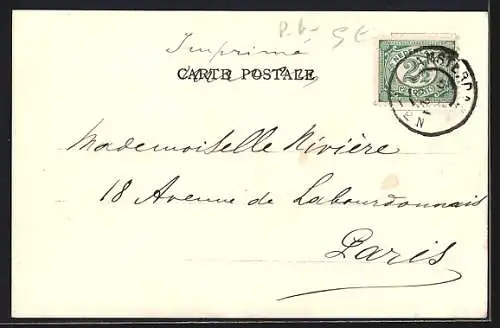 Imprimé
CARTE POSTALE
NEDERLAND
2½
CENT
AMSTERDAM
Mademoiselle Rivière
18 Avenue de Labourdonnais
Paris